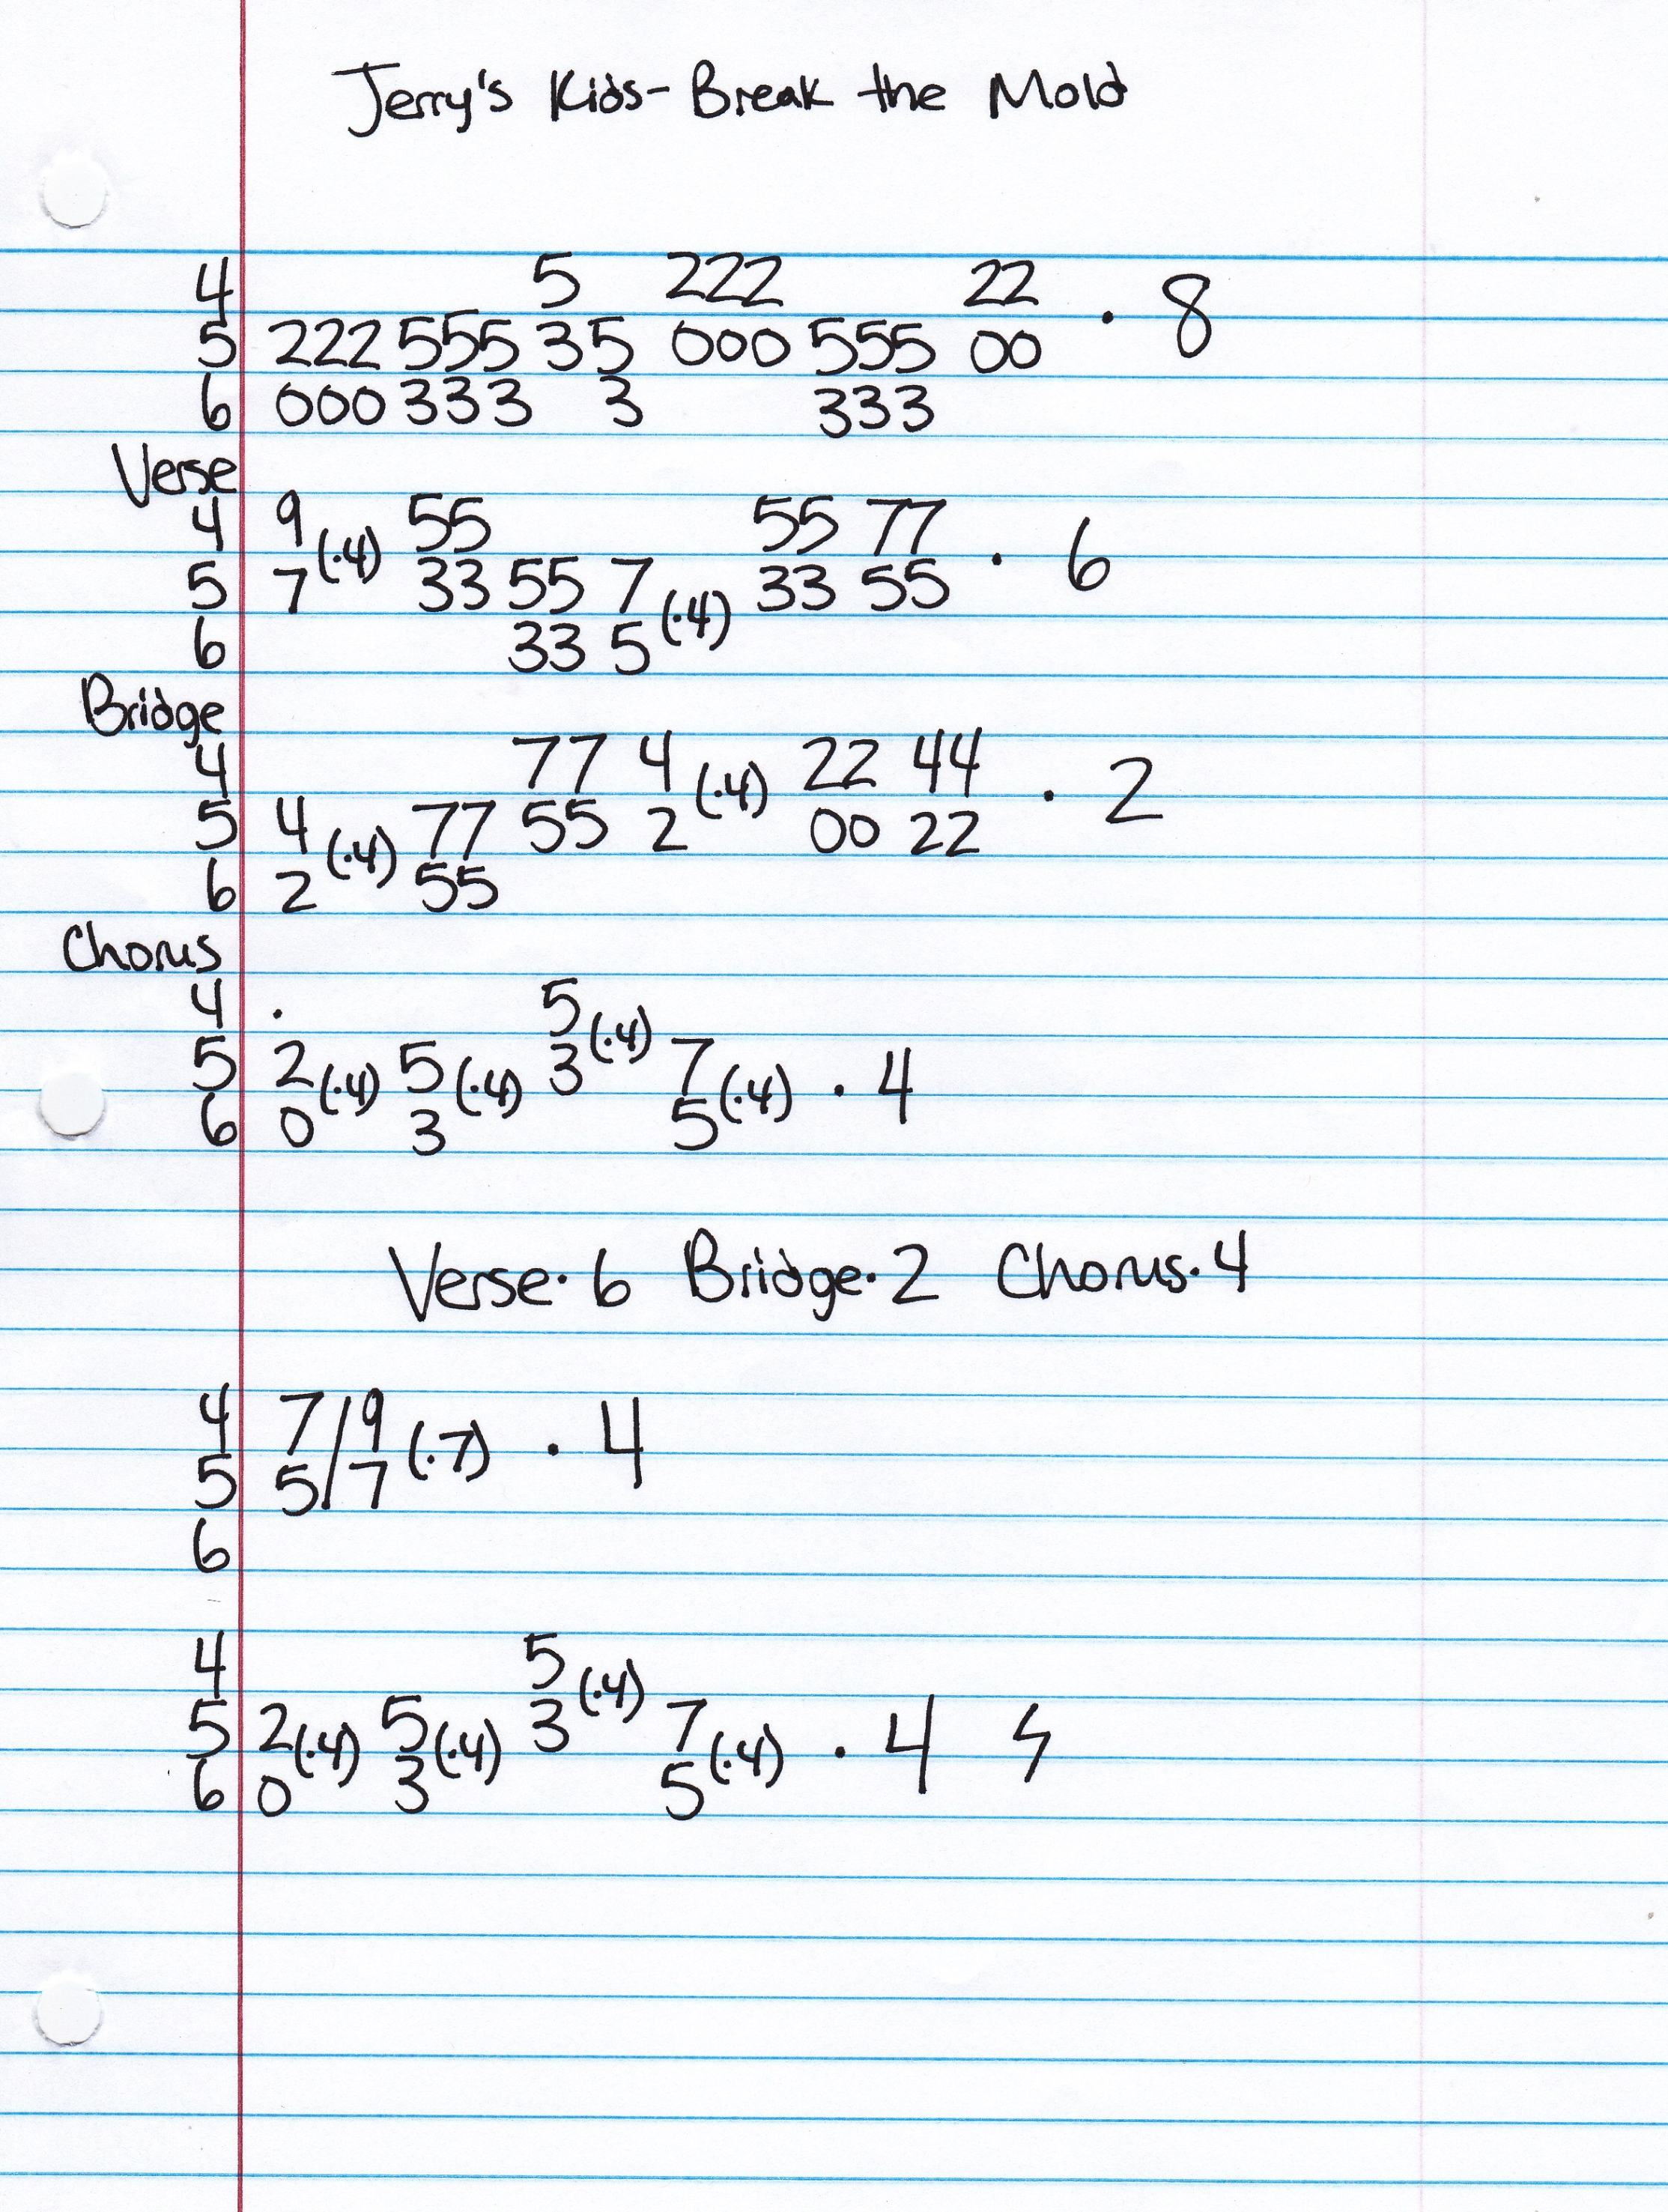 Jerry's Kids- Break the Mold
4 5 222 22
5 222 555 35 000 555 00 · 8
6 000 333 3 333
Verse
4 9 (·4) 55 55 77
5 7 33 55 7 (·4) 33 55 · 6
6 33 5
Bridge
4 77 4 (·4) 22 44
5 4 (·4) 77 55 2 00 22 · 2
6 2 55
Chorus
4 · 5 (·4)
5 2 (·4) 5 (·4) 3 7 (·4) · 4
6 0 3 5
Verse·6 Bridge·2 Chorus·4
4 7/9 (·7) · 4
5 5/7
6
4 5 (·4)
5 2 (·4) 5 (·4) 3 7 (·4) · 4
6 0 3 5